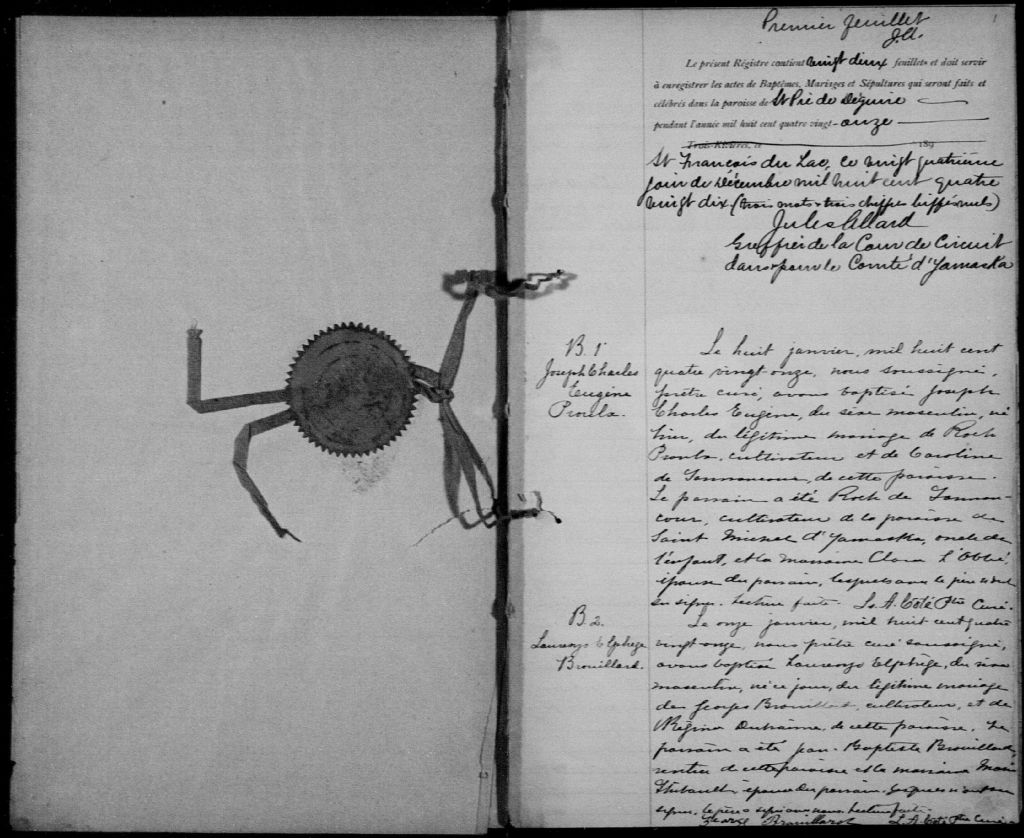 Premier feuillet
J.A.
1
Le présent Régistre contient vingt deux feuillets et doit servir
à enregistrer les actes de Baptêmes, Mariages et Sépultures qui seront faits et
célébrés dans la paroisse de St Pie de Deguire
pendant l'année mil huit cent quatre-vingt-onze
Trois-Rivières, ce 189
St François du Lac, ce vingt quatrième
jour de Décembre mil huit cent quatre
vingt dix (trois mots & trois chiffres biffés nuls)
Jules Allard
Greffier de la Cour de Circuit
dans & pour le Comté d'Yamaska
B. 1
Joseph Charles
Eugène
Proulx.
Le huit janvier, mil huit cent
quatre vingt onze, nous soussigné,
prêtre curé, avons baptisé Joseph
Charles Eugène, du sexe masculin, né
hier, du légitime mariage de Roch
Proulx, cultivateur et de Caroline
de Tonnancour, de cette paroisse.
Le parrain a été Roch de Tonnan-
cour, cultivateur de la paroisse de
Saint Michel d'Yamaska, oncle de
l'enfant, et la marraine Clara L'Abbé,
épouse du parrain, lesquels avec le père n'ont
su signer. Lecture faite. Ls. A. Côté Ptre Curé.
B. 2.
Laurenzo Elphège
Brouillard.
Le onze janvier, mil huit cent quatre
vingt onze, nous prêtre curé soussigné,
avons baptisé Laurenzo Elphège, du sexe
masculin, né ce jour, du légitime mariage
de Georges Brouillard, cultivateur, et de
Régina Duhaime, de cette paroisse. Le
parrain a été Jean-Baptiste Brouillard,
rentier de cette paroisse et la marraine Marie
Thibault, épouse du parrain, lesquels n'ont su
signer, le père a signé avec nous. Lecture faite.
George Brouillard L. A. Côté Ptre Curé